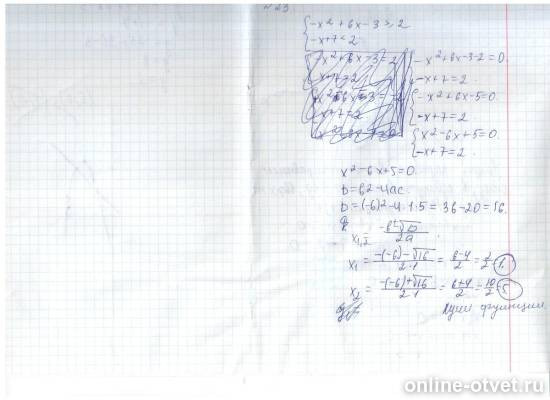 № 23
{ -x² + 6x - 3 > 2
-x + 7 < 2
-x² + 6x - 3 - 2 = 0.
-x + 7 = 2.
-x² + 6x - 5 = 0.
-x + 7 = 2
x² - 6x + 5 = 0
-x + 7 = 2.
x² - 6x + 5 = 0.
D = b² - 4ac.
D = (-6)² - 4·1·5 = 36 - 20 = 16.
x₁,₂ = (-b ± √D)/2a
x₁ = (-(-6) - √16)/(2·1) = (6 - 4)/2 = 2/2 = 1.
x₂ = (-(-6) + √16)/(2·1) = (6 + 4)/2 = 10/2 = 5
функции
online-otvet.ru